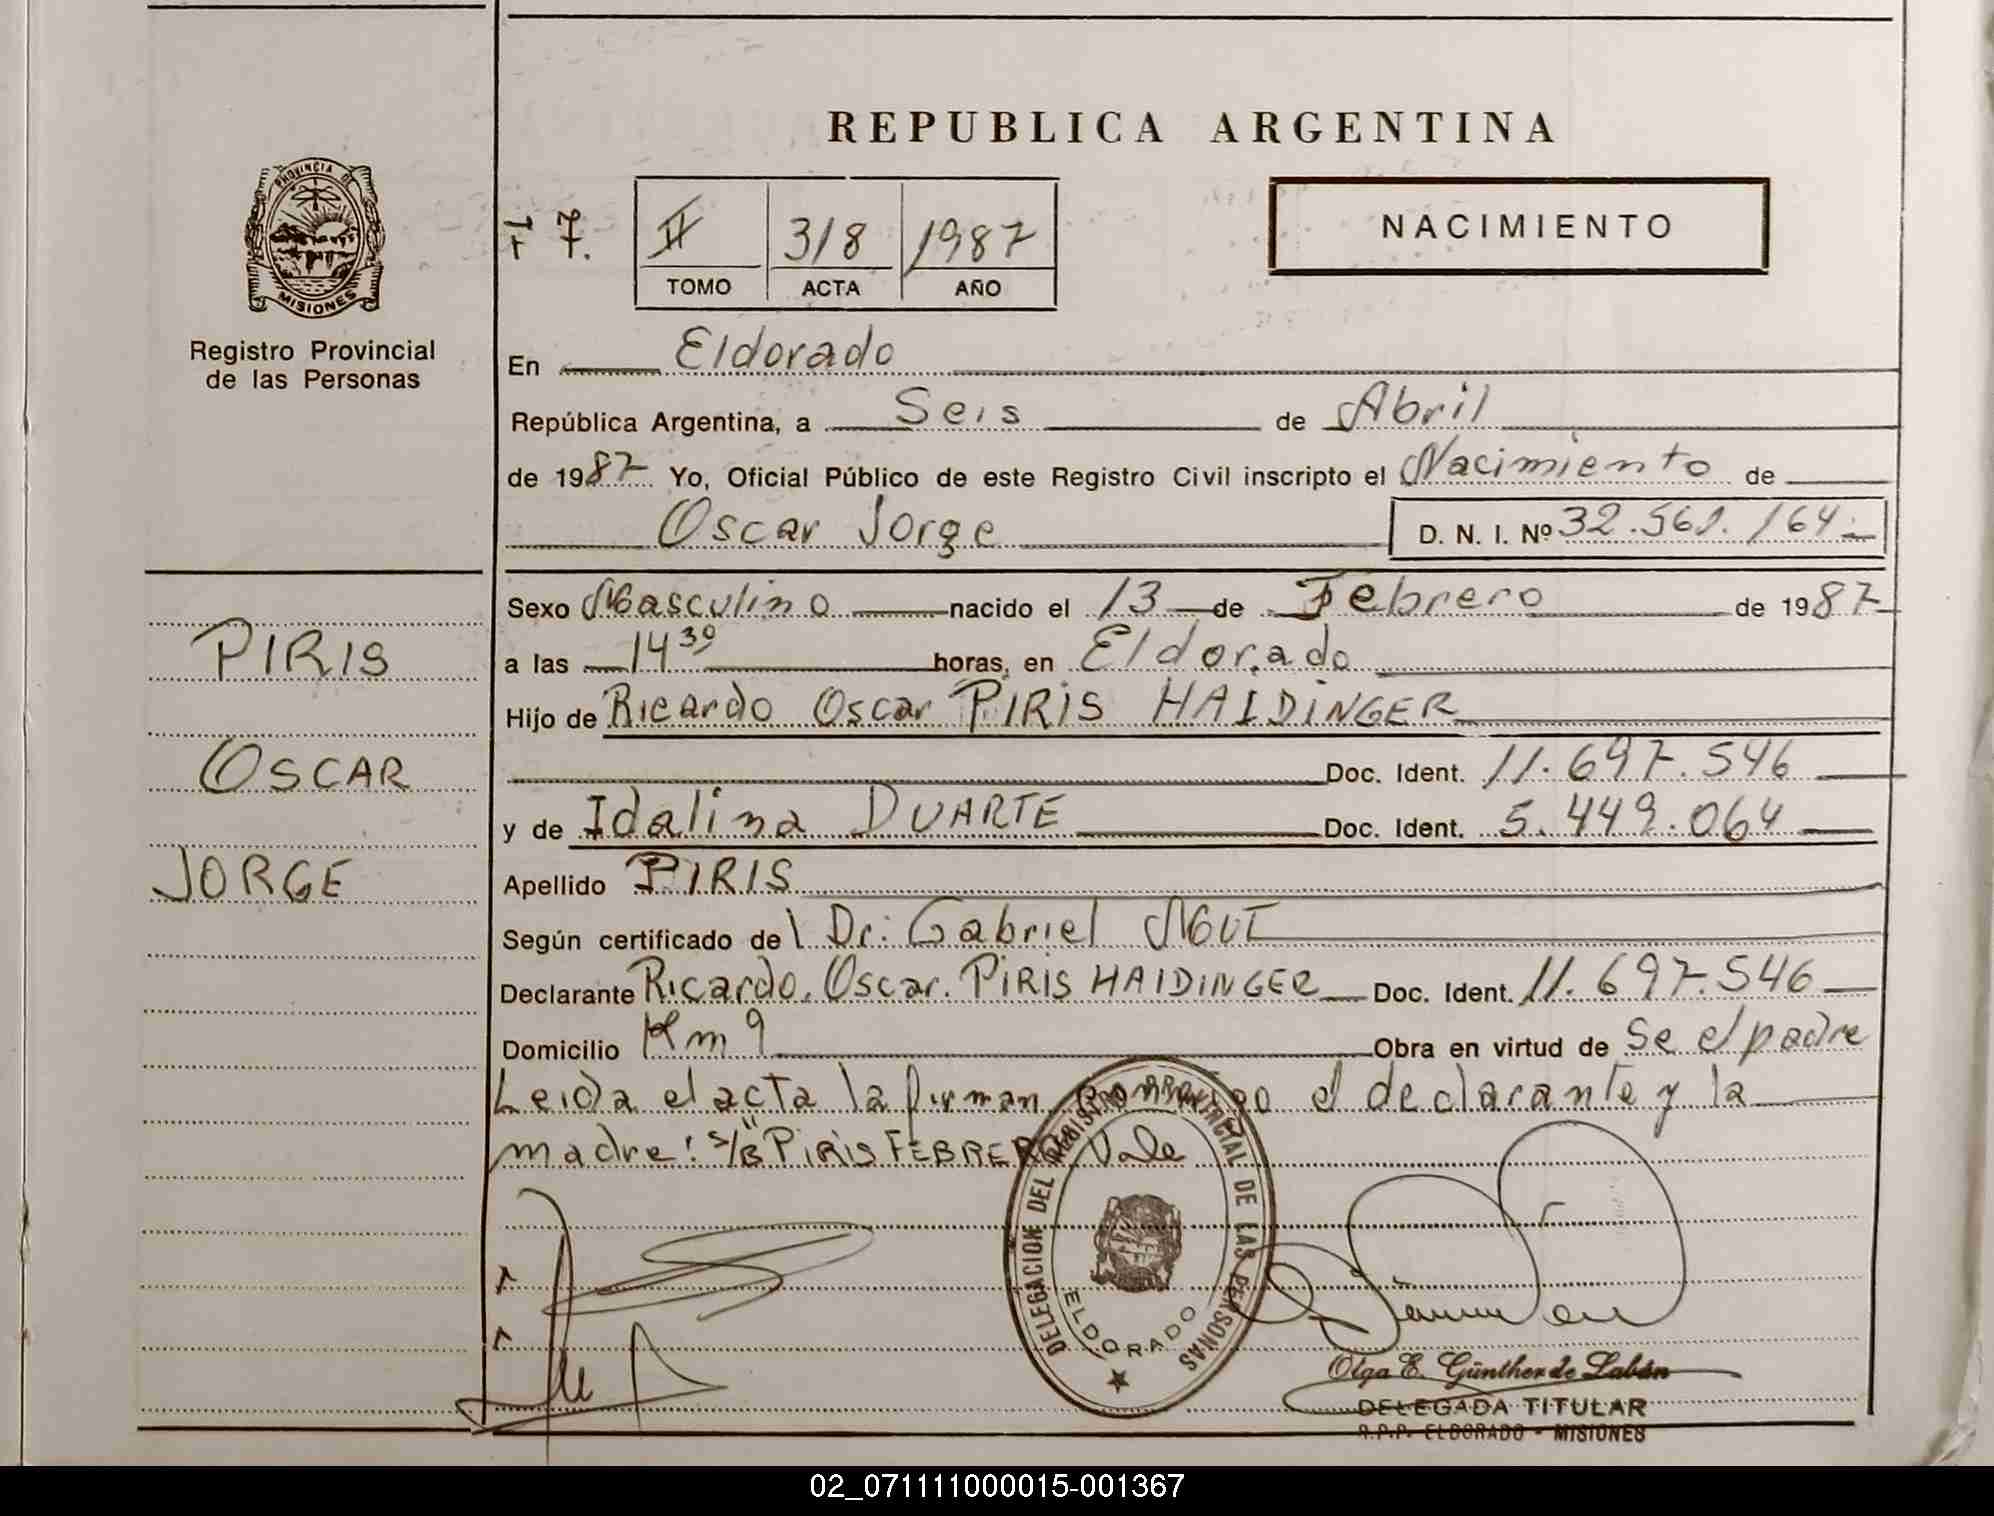 REPUBLICA ARGENTINA
PROVINCIA DE
MISIONES
Registro Provincial
de las Personas
II 318 1987
TOMO ACTA AÑO
NACIMIENTO
En Eldorado
República Argentina, a Seis de Abril
de 1987 Yo, Oficial Público de este Registro Civil inscripto el Nacimiento de
Oscar Jorge D. N. I. Nº 32.561.164
Sexo Masculino nacido el 13 de Febrero de 1987
a las 14 30 horas, en Eldorado
Hijo de Ricardo Oscar PIRIS HAIDINGER
Doc. Ident. 11.697.546
y de Idalina DUARTE Doc. Ident. 5.449.064
Apellido PIRIS
Según certificado del Dr: Gabriel
Declarante Ricardo Oscar PIRIS HAIDINGER Doc. Ident. 11.697.546
Domicilio Km 9 Obra en virtud de Se el padre
Leida el acta la firman conmigo el declarante y la
madre: s/B "PIRIS FEBRERO Vale
PIRIS
OSCAR
JORGE
DELEGACION DEL REGISTRO PROVINCIAL DE LAS PERSONAS
ELDORADO
Olga E. Günther de Labán
DELEGADA TITULAR
R.P.P. ELDORADO - MISIONES
02_071111000015-001367